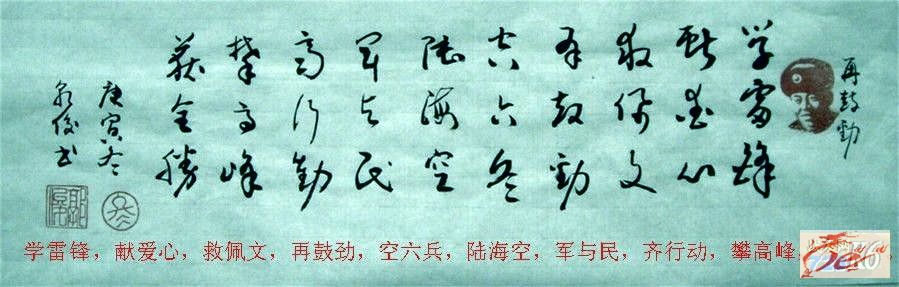 再鼓劲
学雷锋
献爱心
救佩文
再鼓劲
空六兵
陆海空
军与民
齐行动
攀高峰
获全胜
庚寅冬
泉俊书
学雷锋，献爱心，救佩文，再鼓劲，空六兵，陆海空，军与民，齐行动，攀高峰